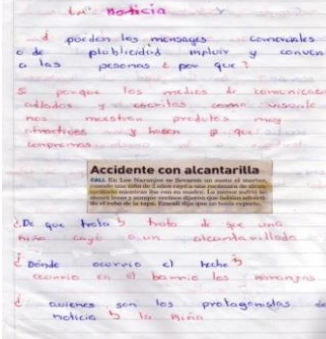 la noticia
¿ pueden los mensages comerciales
o de plublicidad influir y conven
a las pesonas ¿ por que ?
si porque los medios de comunicacio
y escritos como visuale
nos muestran produtos muy
atractivos y hasen que
compremos
Accidente con alcantarilla
CALI. En Los Naranjos se llevaron un susto el martes,
cuando una niña de 2 años
mientras iba con su madre. La menor sufrió un
y aunque vecinos dijeron que habían
de el robo de la tapa, Emcali dijo que no tenía reporte.
¿De que trata? trata de que una
niña cayó a un alcantarillado
¿Donde ocurrio el hecho?
ocurrio en el barrio los naranjos
¿ quienes son los protagonistas de
noticia? la niña